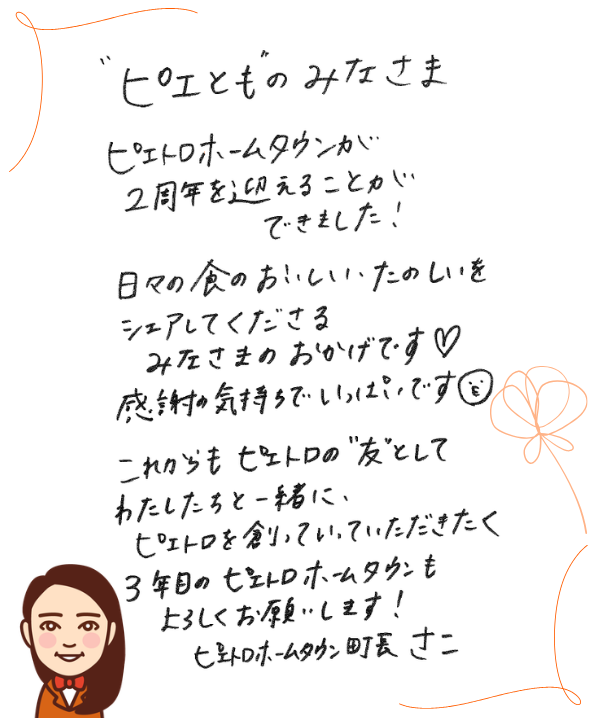 "ピエとも"のみなさま
ピエトロホームタウンが
2周年を迎えることが
できました!
日々の食のおいしい、たのしいを
シェアしてくださる
みなさまのおかげです♡
感謝の気持ちでいっぱいです
これからもピエトロの"友"として
わたしたちと一緒に、
ピエトロを創っていっていただきたく
3年目のピエトロホームタウンも
よろしくお願いします!
ピエトロホームタウン町長 さこ